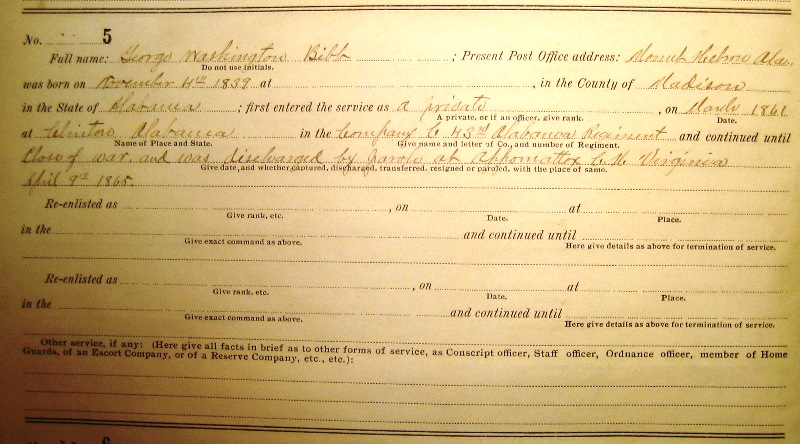 No. 5
Full name: George Washington Bibb ; Present Post Office address: Mount Hebron Ala.
Do not use initials.
was born on November 4th 1839 at , in the County of Madison
in the State of Alabama ; first entered the service as a private , on March 1861
A private, or if an officer, give rank. Date.
at Clinton Alabama in the Company C 43rd Alabama Regiment and continued until
Name of Place and State. Give name and letter of Co., and number of Regiment.
Close of war. and was discharged by parole at Appomattox C.H. Virginia
Give date, and whether captured, discharged, transferred, resigned or paroled, with the place of same.
April 9th 1865.
Re-enlisted as , on at
Give rank, etc. Date. Place.
in the and continued until
Give exact command as above. Here give details as above for termination of service.
Re-enlisted as , on at
Give rank, etc. Date. Place.
in the and continued until
Give exact command as above. Here give details as above for termination of service.
Other service, if any: (Here give all facts in brief as to other forms of service, as Conscript officer, Staff officer, Ordnance officer, member of Home
Guards, of an Escort Company, or of a Reserve Company, etc., etc.):